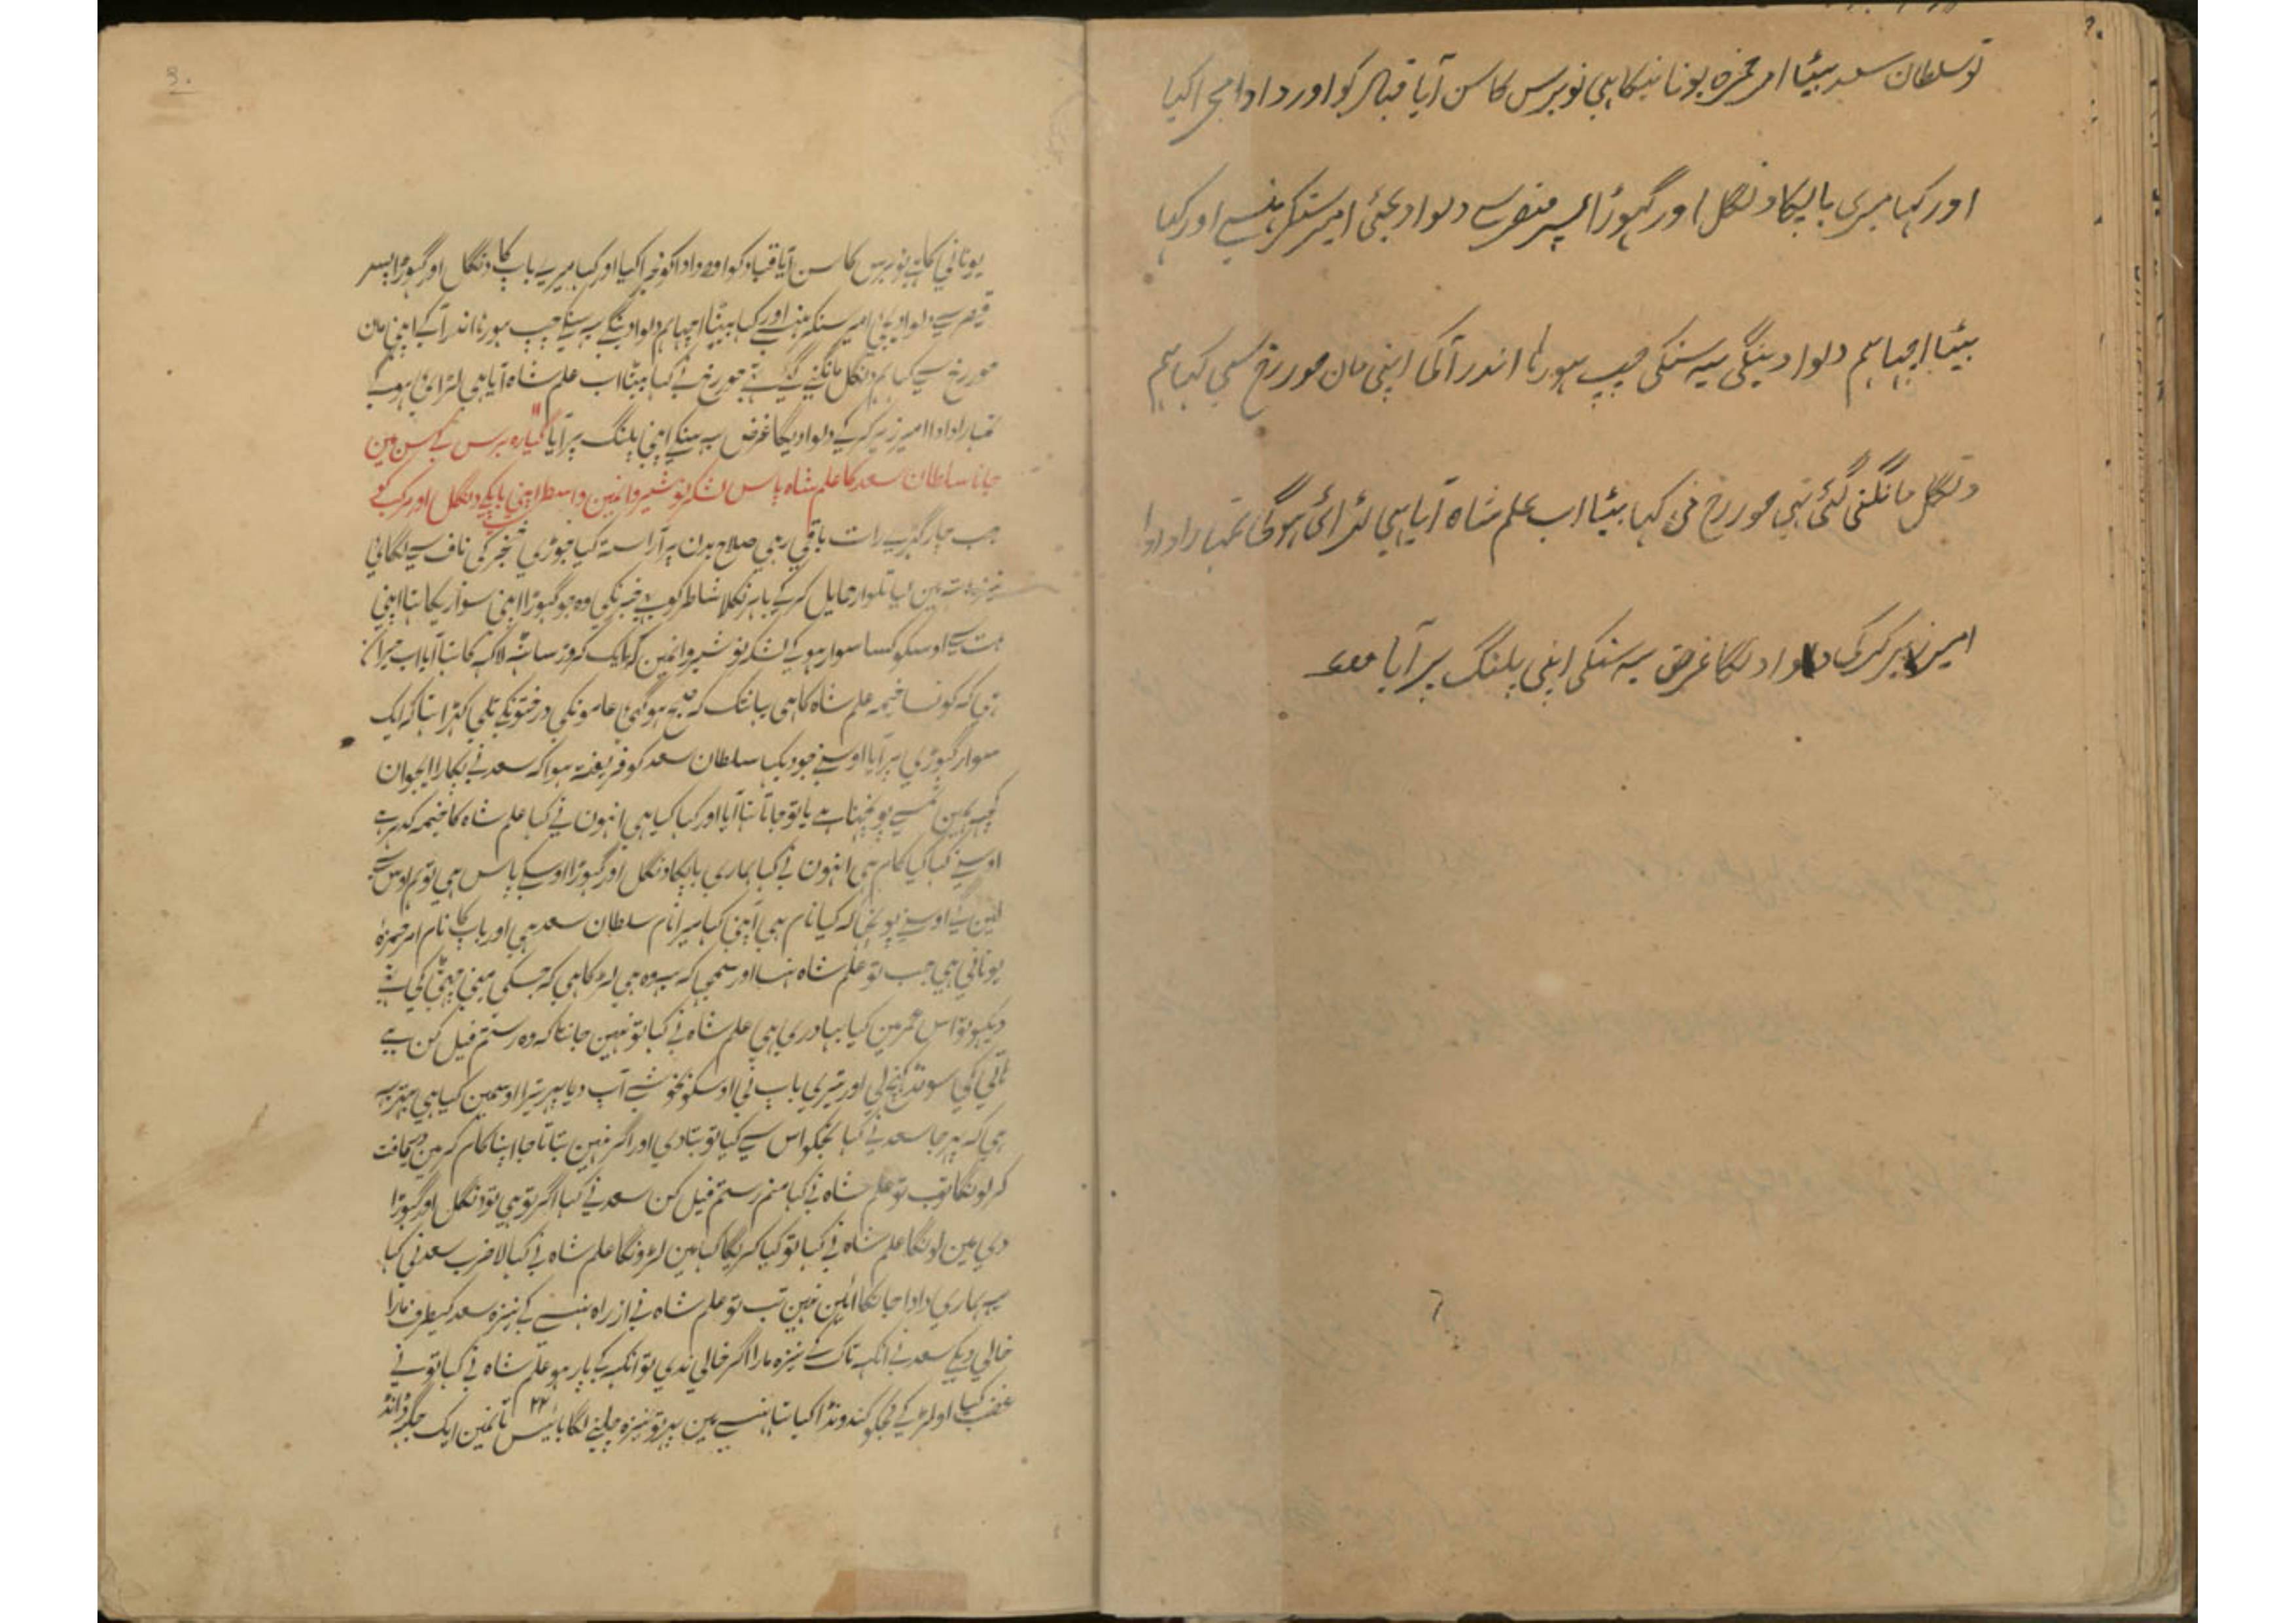 تو سلطان سعد بیٹا امر حمزہ یونانیکا ہی نو برس کا سن آیا قباد کو اور دادا مجرا کیا
اور کہا میری باپکا دنگل اور گہوڑا پسر قیصر سے دلوا دیجئی امیر سنکر ہنسے اور کہا
بیٹا اچہا ہم دلوا دینگی یہ سنکی چپ ہو رہا اندر آکی اپنی مان حور رخ سی کہا ہم
دنگل مانگنی گئی تہی حور رخ نی کہا بیٹا اب علم شاہ آیا ہی لڑائی ہوگی تمہارا دادا
امیر زیر کرکی دلوا دیگا غرض یہ سنکی اپنی پلنگ پر آیا
یونانی کا ہے نو برس کا سن آیا قباد کو اور دادا کو مجرا کیا اور کہا میرے باپ کا دنگل اور گہوڑا پسر
قیصر سے دلوا دیجئی امیر سنکر ہنسے اور کہا بیٹا اچہا ہم دلوا دینگے یہ سنکے چپ ہو رہا اندر آکے اپنی مان
حور رخ سے کہا ہم دنگل مانگنے گئے تہے حور رخ نے کہا بیٹا اب علم شاہ آیا ہی لڑائی ہوگی
تمہارا دادا امیر زیر کرکے دلوا دیگا غرض یہ سنکے اپنی پلنگ پر آیا گیارہ برس کے سن مین
جانا سلطان سعد کا علم شاہ پاس لشکر نوشیروانمین واسطے اپنی باپکے دنگل اور مرکب کے
جب چار گہڑی رات باقی رہی صلاح بدن پر آراستہ کیا جوڑی خنجر کی ناف سے لگائی
نیزہ ہات مین لیا تلوار حمایل کرکے باہر نکلا شاطر کو بہی خبر نکی وہ جو گہوڑا اپنی سواریکا تہا اپنی
ہات سے اوسکو کسا سوار ہوکے لشکر نوشیروانمین کہ ایک کروڑ ساٹہ لاکہ کا تہا آیا اب حیران
ہی کہ کونسا خیمہ علم شاہ کا ہی یہانتک کہ صبح ہوگئی عامونکی درختونکے تلی کہڑا تہا کہ ایک
سوار گہوڑی پر آیا اوسنے جو دیکہا سلطان سعد کو فریفتہ ہوا کہ سعد نے پکارا ایجوان
کچہہ مین تمسے پوچہتا ہے یا تو جاتا تہا آیا اور کہا کیا ہی انہون نے کہا علم شاہ کا خیمہ کدہر ہے
اوسنے کہا کیا کام ہی انہون نے کہا ہماری باپکا دنگل اور گہوڑا اوسکے پاس ہی تو ہم اوس سے
لین گے اوسنے پوچہا کہ کیا نام ہی اپنی کہا میرا نام سلطان سعد ہی اور باپ کا نام امر حمزہ
یونانی ہی جب تو علم شاہ ہنسا اور سمجہی کہ یہ وہ ہی لڑکا ہی کہ جسکی
دیکہو تو اس عمر مین کیا بہادری ہی علم شاہ نے کہا تو نہین جانتا کہ وہ رستم فیل کن ہے
ہاتی کی سونڈ کہنچ لی اور تیری باپ نی اوسکو بخوشے آپ دیا پہر تیرا اوسمین کیا ہی بہتر یہ
ہی کہ پہر جا سعد نے کہا تجکو اس سے کیا تو بتا دی اور اگر نہین بتاتا جا اپنا کام کر مین دریافت
کر لونگا تب تو علم شاہ نے کہا منم رستم فیل کن سعد نے کہا اگر تو ہی تو دنگل اور گہوڑا
دی مین لونگا علم شاہ نے کہا تو کیا کریگا کہا مین لڑونگا علم شاہ نے کہا لا ضرب سعد نی کہا
یہ ہماری دادا جانکا آئین نہین تب تو علم شاہ نے از راہ ہنسے کے نیزہ سعد کیطرف مارا
خالی دیکے سعد نے آنکہہ تاک کے نیزہ مارا اگر خالی ندی تو آنکہہ کے پار ہو علم شاہ نے کہا تو نے
غضب کیا او لڑکے مجکو کیا تہا ہنسے مین پہر تو نیزہ چلنے لگا بائیس ۲۲ تانمین ایک جگہہ ڈانڈ